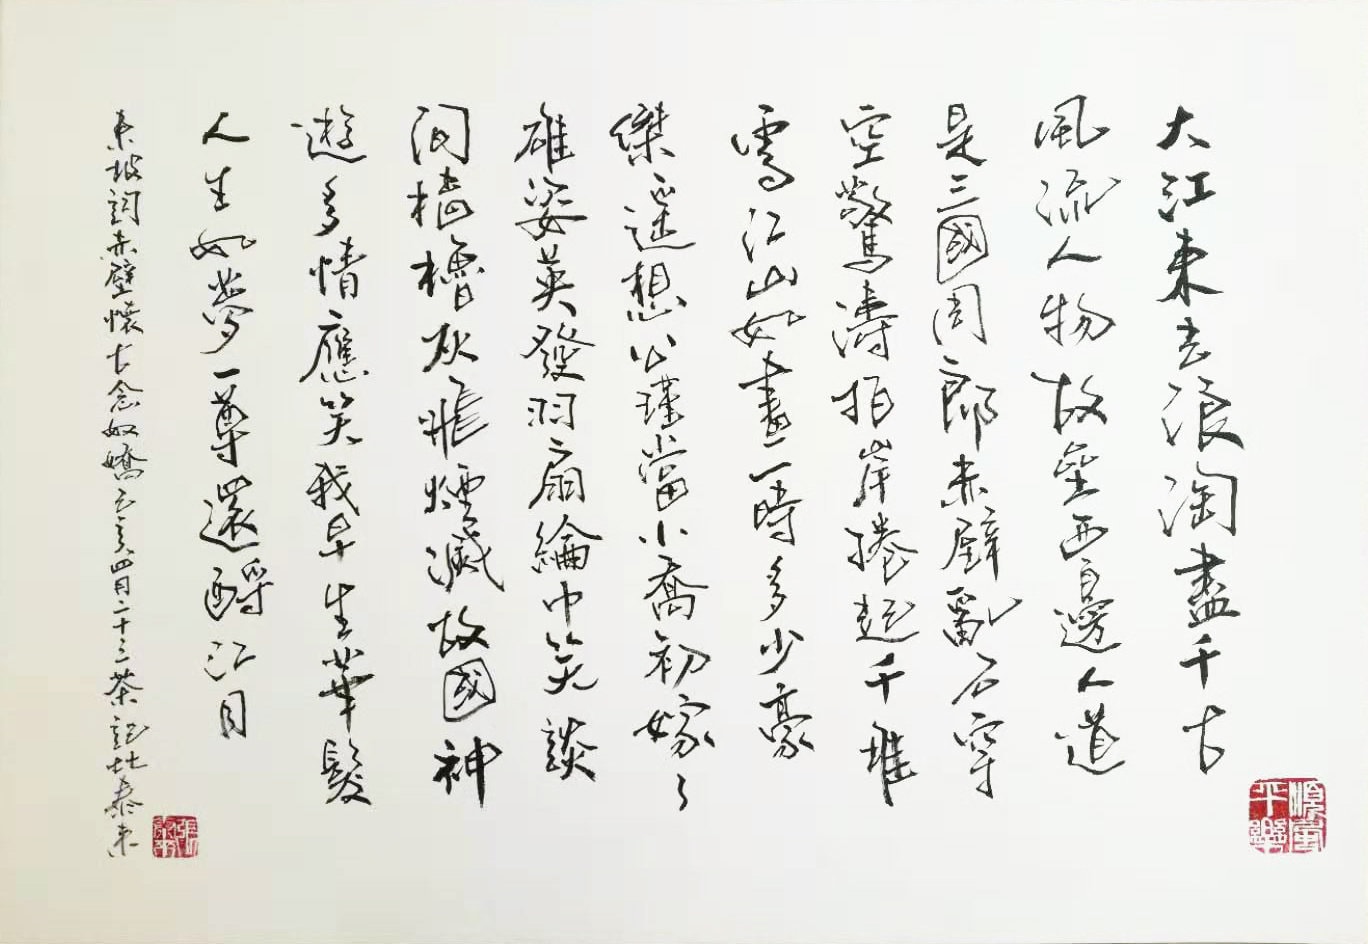 大江東去浪淘盡千古
風流人物故壘西邊人道
是三國周郎赤壁亂石穿
空驚濤拍岸捲起千堆
雪江山如畫一時多少豪
傑遙想公瑾當小喬初嫁了
雄姿英發羽扇綸巾笑談
間檣櫓灰飛煙滅故國神
遊多情應笑我早生華髮
人生如夢一尊還酹江月
東坡詞赤壁懷古念奴嬌己亥四月二十三茶記於泰東